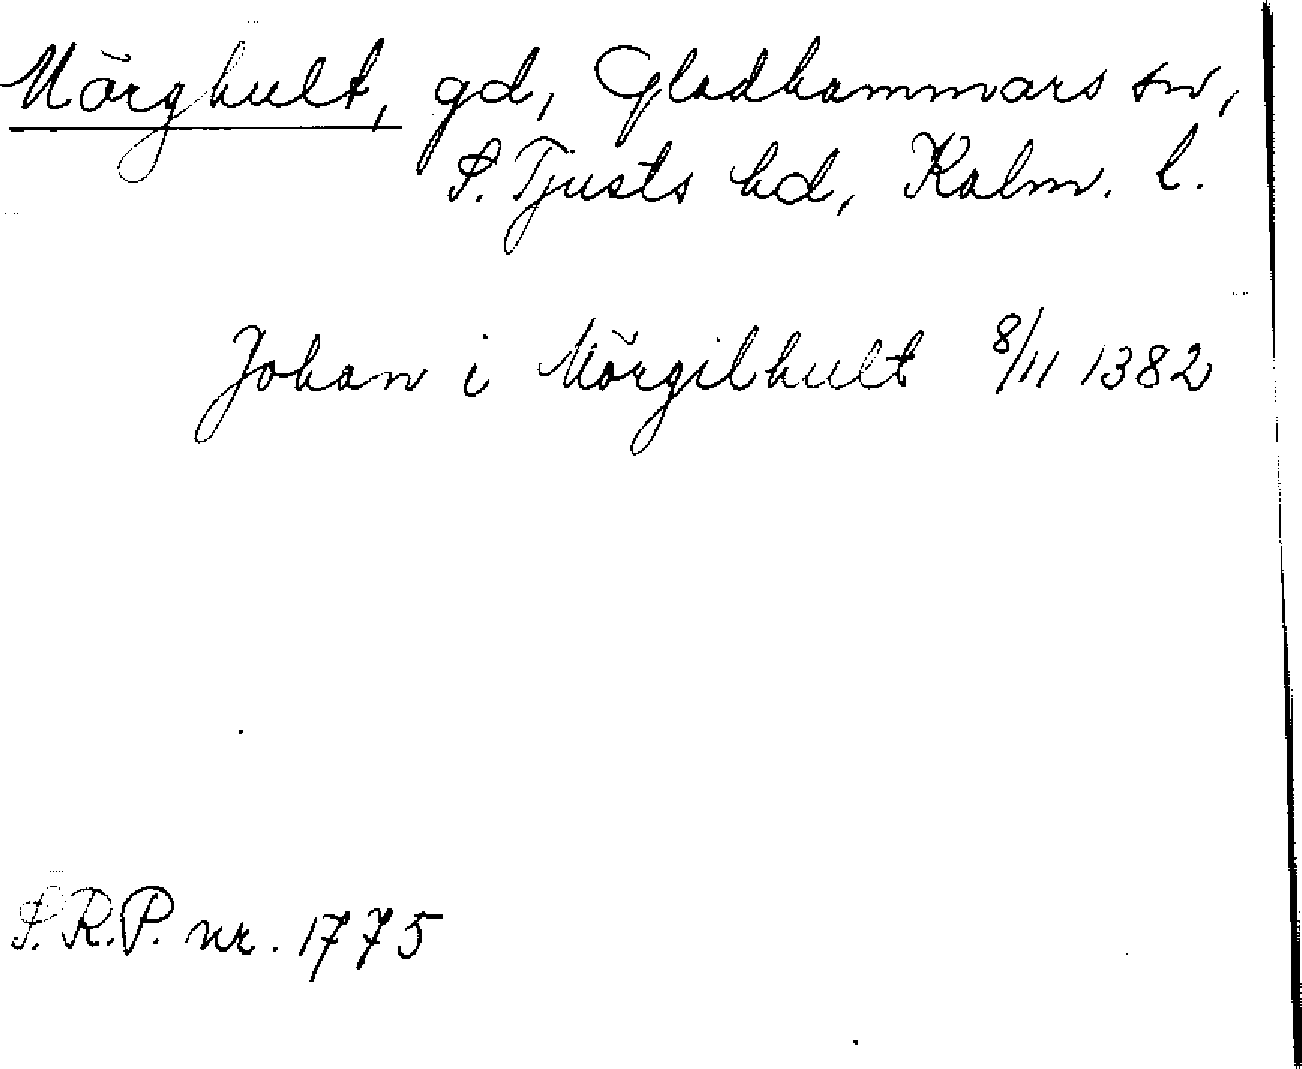 Mörghult, gd, Gladhammars sn,
S. Tjusts hd, Kalm. l.
Johan i Mörgilhult 8/11 1382
S.R.P. nr. 1775